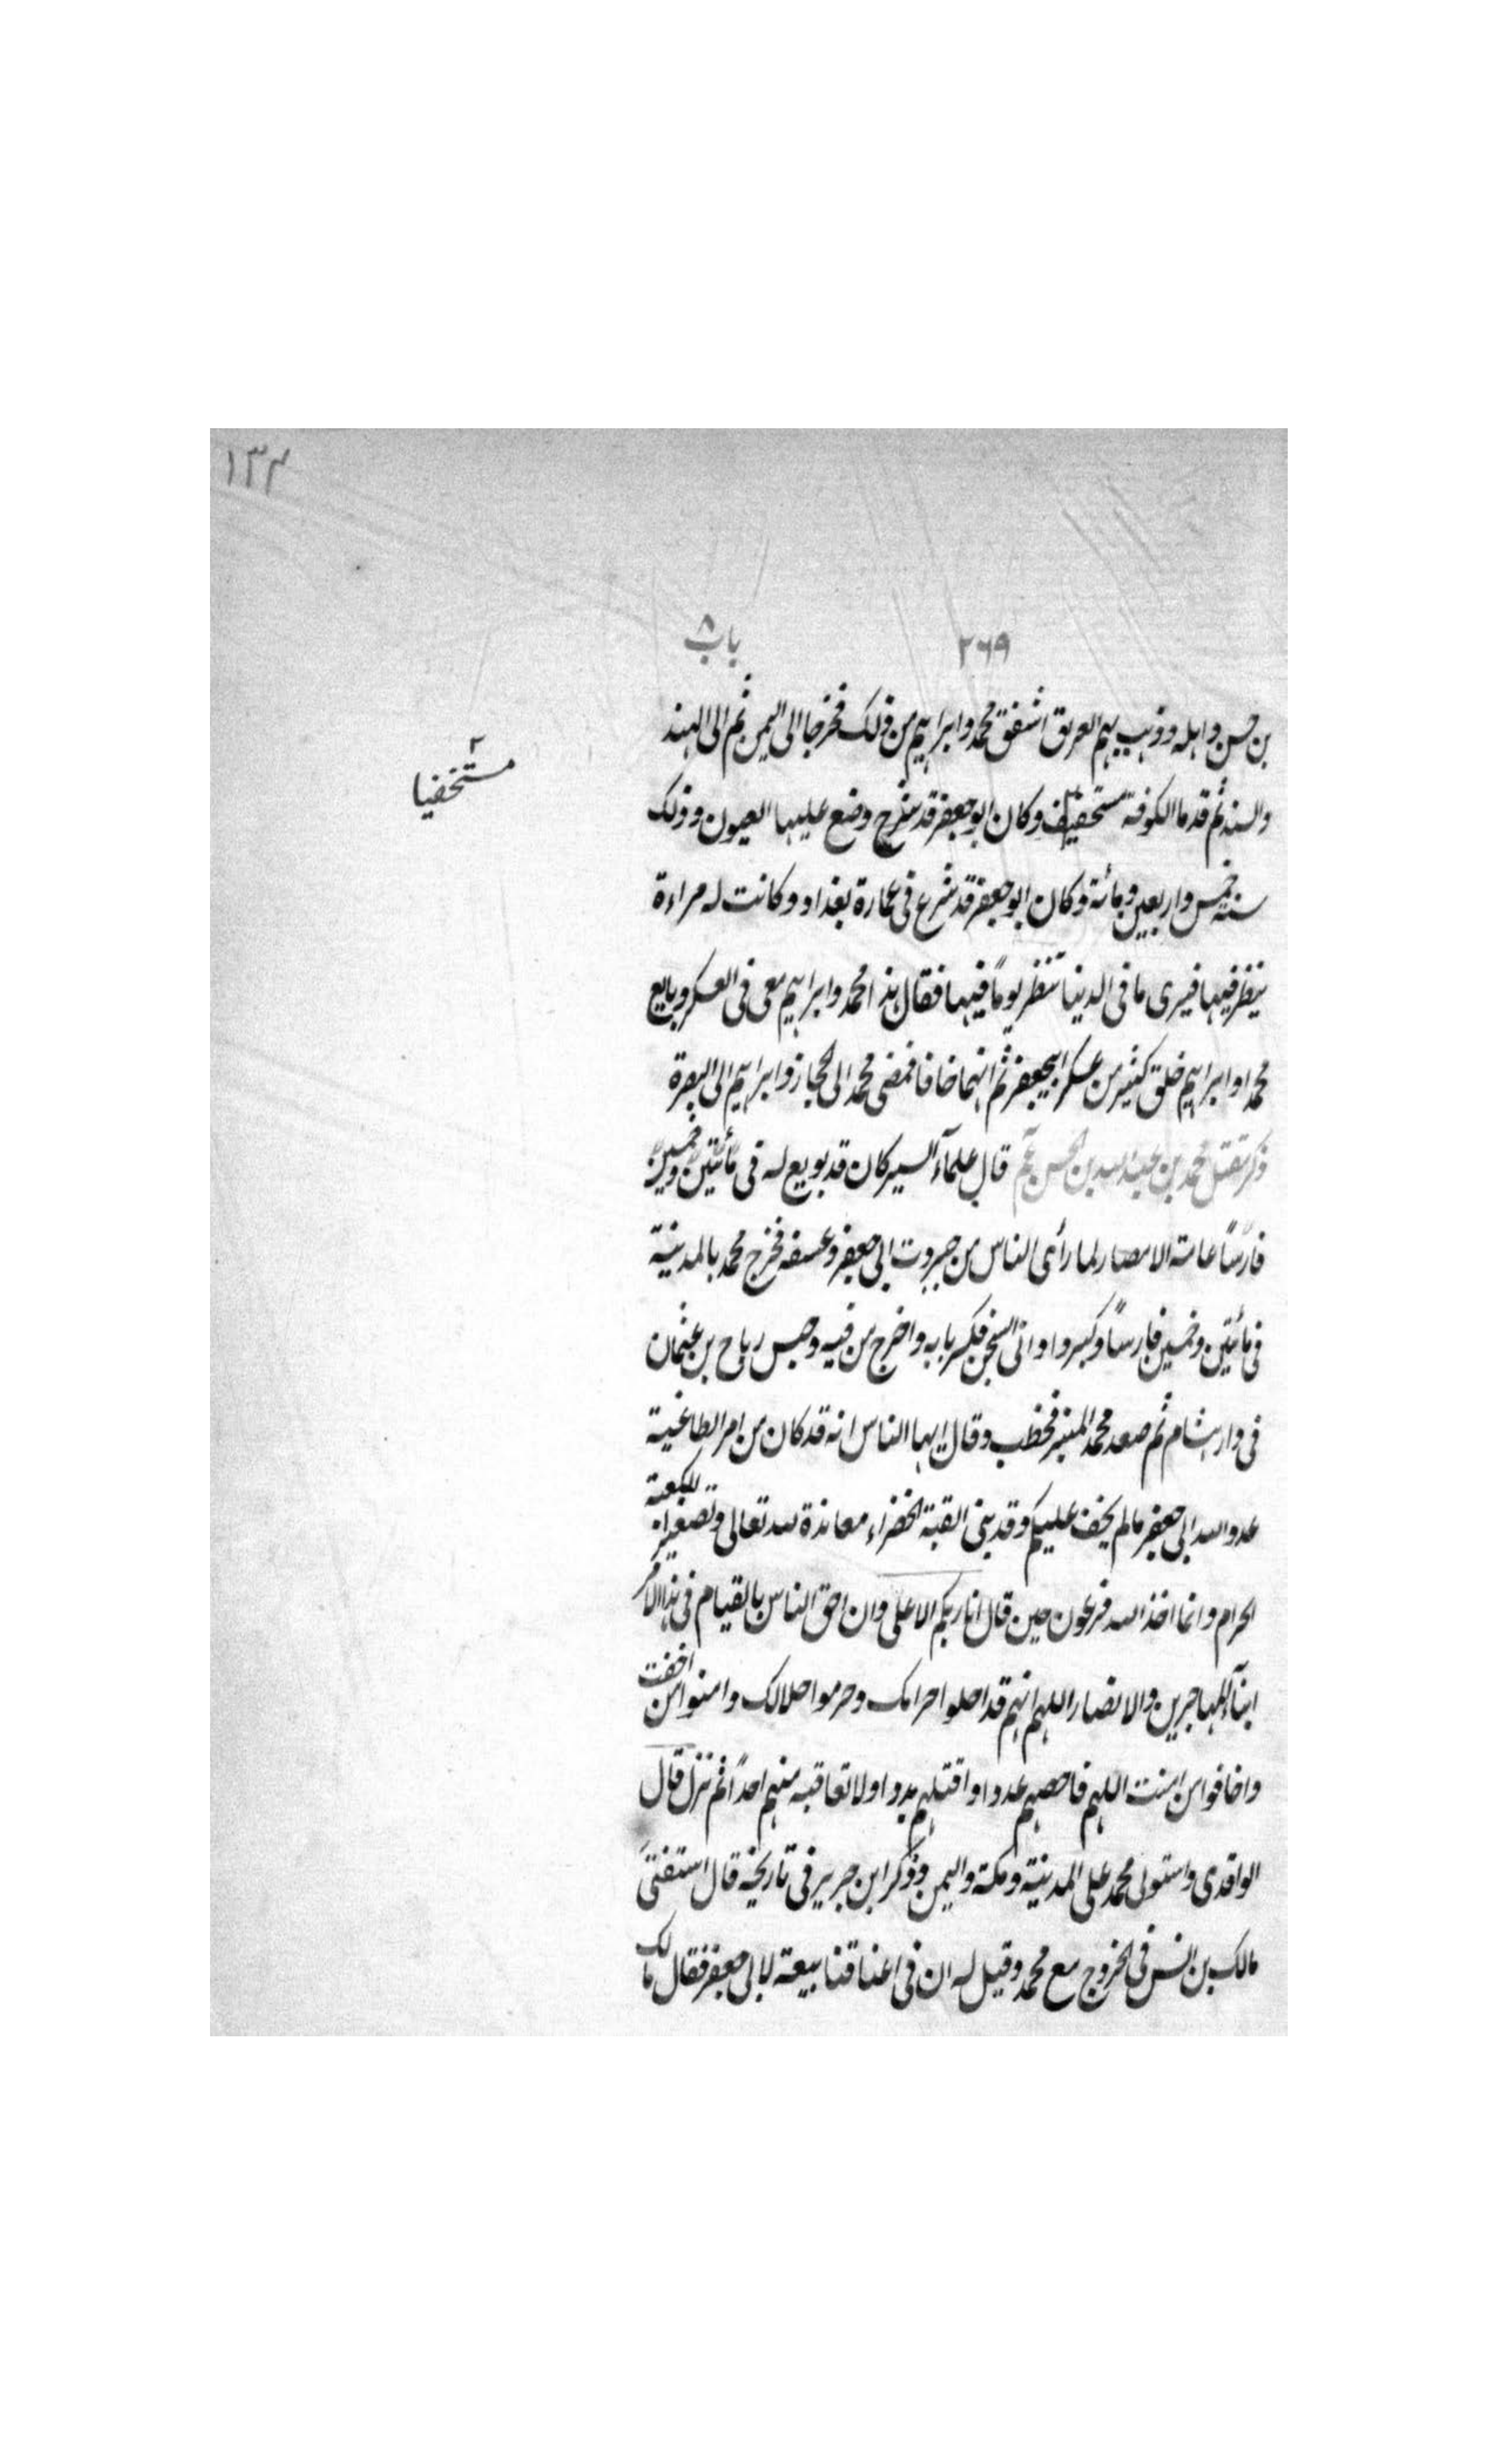 ١٣٣
٢٦٩ باب ٨
بن حسن واهله وذهب بهم العريق اشفق محمد وابراهيم من ذلك فخرجا الى اليمن ثم الى الهند
مستخفيا
والسند ثم قدما الكوفة وكان ابو جعفر قد وضع عليها العيون وذلك
سنة خمس واربعين ومائة وكان ابو جعفر قد شرع فى عمارة بغداد وكانت له مراءة
ينظر فيها فيرى ما فى الدنيا تنظر يومًا فيها فقال هذا محمد وابراهيم معى فى العسكر وبايع
محمدا وابراهيم خلق كثير من عسكر ابيجعفر ثم انهما خافا فمضى محمد الى الحجاز وابراهيم الى البصرة
ذكر مقتل محمد بن عبد الله بن الحسن قال علماء السير كان قد بويع له فى مأتين وخمسين
فارسًا عامة الامصار لما رأى الناس من جبروت ابى جعفر وعسفه فخرج محمد بالمدينة
فى مائتين وخمسين فارسًا وكبروا واتى السجن فكسر بابه واخرج من فيه وحبس رباح بن عثمان
فى دار هشام ثم صعد محمد المنبر فخطب وقال ايها الناس انه قد كان من امر الطاغية
عدو الله ابى جعفر مالم يخف عليكم وقد بنى القبة الخضراء معاندة لله تعالى وتصغيرا للكعبة
الحرام وانما اخذ الله فرعون حين قال انا ربكم الاعلى وان احق الناس بالقيام فى هذا الامر
ابناء المهاجرين والانصار اللهم انهم قد احلوا حرامك وحرموا حلالك وامنوا من اخفت
واخافوا من امنت اللهم فاحصهم عددا واقتلهم بددا ولا تعاقبه منهم احدًا ثم نزل قال
الواقدى واستولى محمد على المدينة ومكة واليمن وذكر ابن جرير فى تاريخه قال استفتى
مالك بن انس فى الخروج مع محمد وقيل له ان فى اعناقنا بيعة لابى جعفر فقال مالك